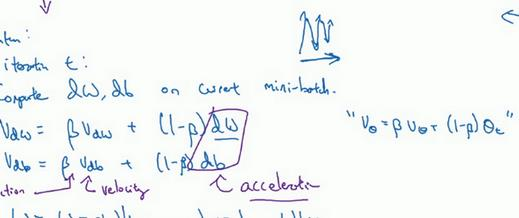 iteration t:
Compute dW, db on current mini-batch.
Vdw = βVdw + (1-β)dW
Vdb = βVdb + (1-β)db
"Vθ = βVθ + (1-β)θt"
velocity
acceleration